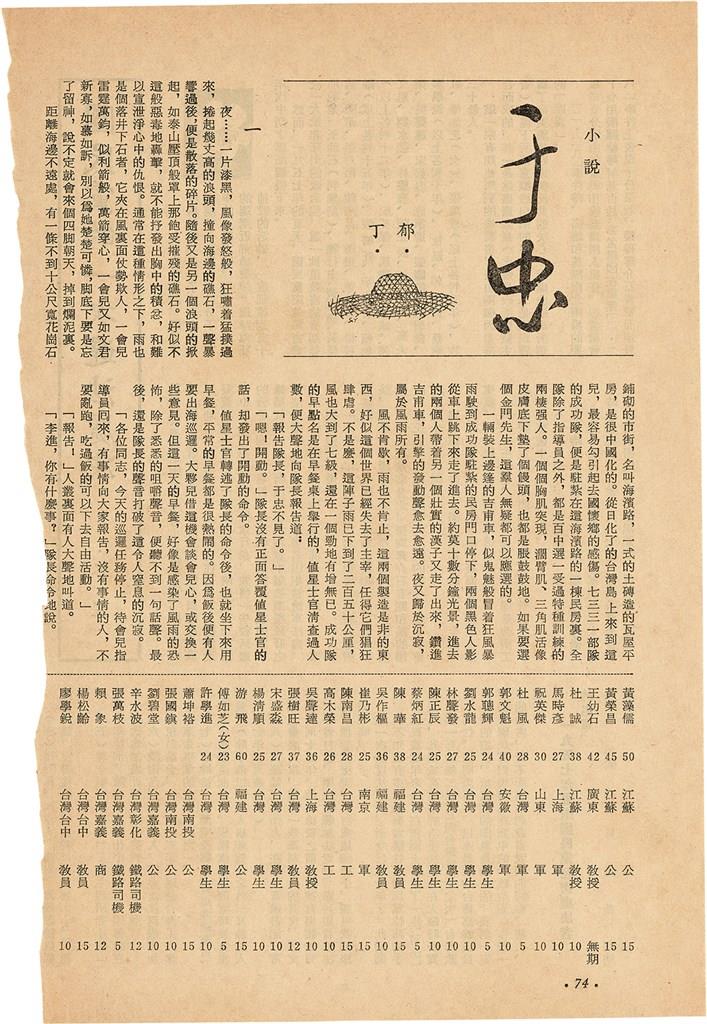 小說
于忠
郁丁
一
夜……一片漆黑,風像發怒般,狂嘯着猛撲過
來,捲起幾丈高的浪頭,撞向海邊的礁石,一聲暴
響過後,便是散落的碎片。隨後又是另一個浪頭的掀
起,如泰山壓頂般罩上那飽受摧殘的礁石。好似不
這般惡毒地轟擊,就不能抒發出胸中的積忿,和難
以宣泄淨心中的仇恨。通常在這種情形之下,雨也
是個落井下石者,它夾在風裏面仗勢欺人,一會兒
雷霆萬鈞,似利箭般,萬箭穿心,一會兒又如文君
新寡,如慕如訴,別以爲她楚楚可憐,脚底下要是忘
了留神,說不定就會來個四脚朝天,掉到爛泥裏。
距離海邊不遠處,有一條不到十公尺寬花崗石
鋪砌的市街,名叫海濱路,一式的土磚造的瓦屋平
房,是很中國化的。從日化了的台灣島上來到這
兒,最容易勾引起去國懷鄉的感傷。七三三一部隊
的成功隊,便是駐紮在這海濱路的一棟民房裏。全
隊除了指導員之外,都是百中選一受過特種訓練的
兩棲强人。一個個胸肌突現、濶臂肌、三角肌活像
皮膚底下墊了個饅頭,也都是脹鼓鼓地。如果要選
個金門先生,這羣人無疑都可以應選的。
一輛裝上邊篷的吉甫車,似鬼魅般冒着狂風暴
雨駛到成功隊駐紮的民房門口停下,兩個黑色人影
從車上跳下來走了進去。約莫十數分鐘光景,進去
的兩個人帶着另一個壯實的漢子又走了出來,鑽進
吉甫車,引擎的發動聲愈去愈遠。夜又歸於沉寂,
屬於風雨所有。
風不肯歇,雨也不肯止,這兩個製造是非的東
西,好似這個世界已經失去了主宰,任得它們猖狂
肆虐。不是麼,這陣子雨已下到了二百五十公厘,
風也大到了七級,還在一個勁地有增無已。成功隊
的早點名是在早餐桌上舉行的,值星士官清查過人
數,便大聲地向隊長報告道:
「報告隊長,于忠不見了。」
「嗯!開動。」隊長沒有正面答覆值星士官的
話,却發出了開動的命令。
值星士官轉述了隊長的命令後,也就坐下來用
早餐,平常的早餐都是很熱鬧的。因爲飯後便有人
要出海巡邏。大夥兒借這機會談會兒心,或交換一
些意見。但這一天的早餐,好像是感染了風雨的恐
怖,除了悉悉的咀嚼聲音,便聽不到一句話聲。最
後,還是隊長的聲音打破了這令人窒息的沉寂。
「各位同志,今天的巡邏任務停止,待會兒指
導員囘來,有事情向大家報告,沒有事情的人,不
要亂跑,吃過飯的可以下去自由活動。」
「報告!」人叢裏面有人大聲地叫道。
「李進,你有什麼事?」隊長命令他說。
黃藻儒 50 江蘇 公 15
黃榮昌 45 江蘇 公 15
王幼石 42 廣東 教授 無期
杜誠 38 江蘇 教授 10
馬時彥 27 上海 軍 10
祝英傑 30 山東 軍 10
杜風 28 台灣 軍 5
郭文魁 40 安徽 軍 10
郭聰輝 24 台灣 學生 5
劉水龍 25 台灣 學生 10
林聲發 27 台灣 公 10
陳正辰 25 台灣 學生 10
蔡炳紅 24 台灣 學生 5
陳華 38 福建 教員 15
吳作樞 36 福建 教員 10
崔乃彬 35 南京 軍 15
陳南昌 28 台灣 工 15
高木榮 26 台灣 工 10
吳聲達 36 上海 教授 10
張樹旺 37 台灣 教員 12
宋盛淼 27 台灣 學生 10
楊清順 25 台灣 學生 10
游飛 60 福建 公 15
傅如芝(女) 23 台灣 學生 5
許學進 24 台灣 學生 10
蕭坤裕 台灣南投 公 15
張國鎮 台灣南投 公 10
劉碧堂 台灣嘉義 公 10
辛水波 台灣彰化 鐵路司機 12
張萬枝 台灣嘉義 鐵路司機 5
賴象 台灣嘉義 商 12
楊松齡 台灣台中 教員 15
廖學銳 台灣台中 教員 10
·74·